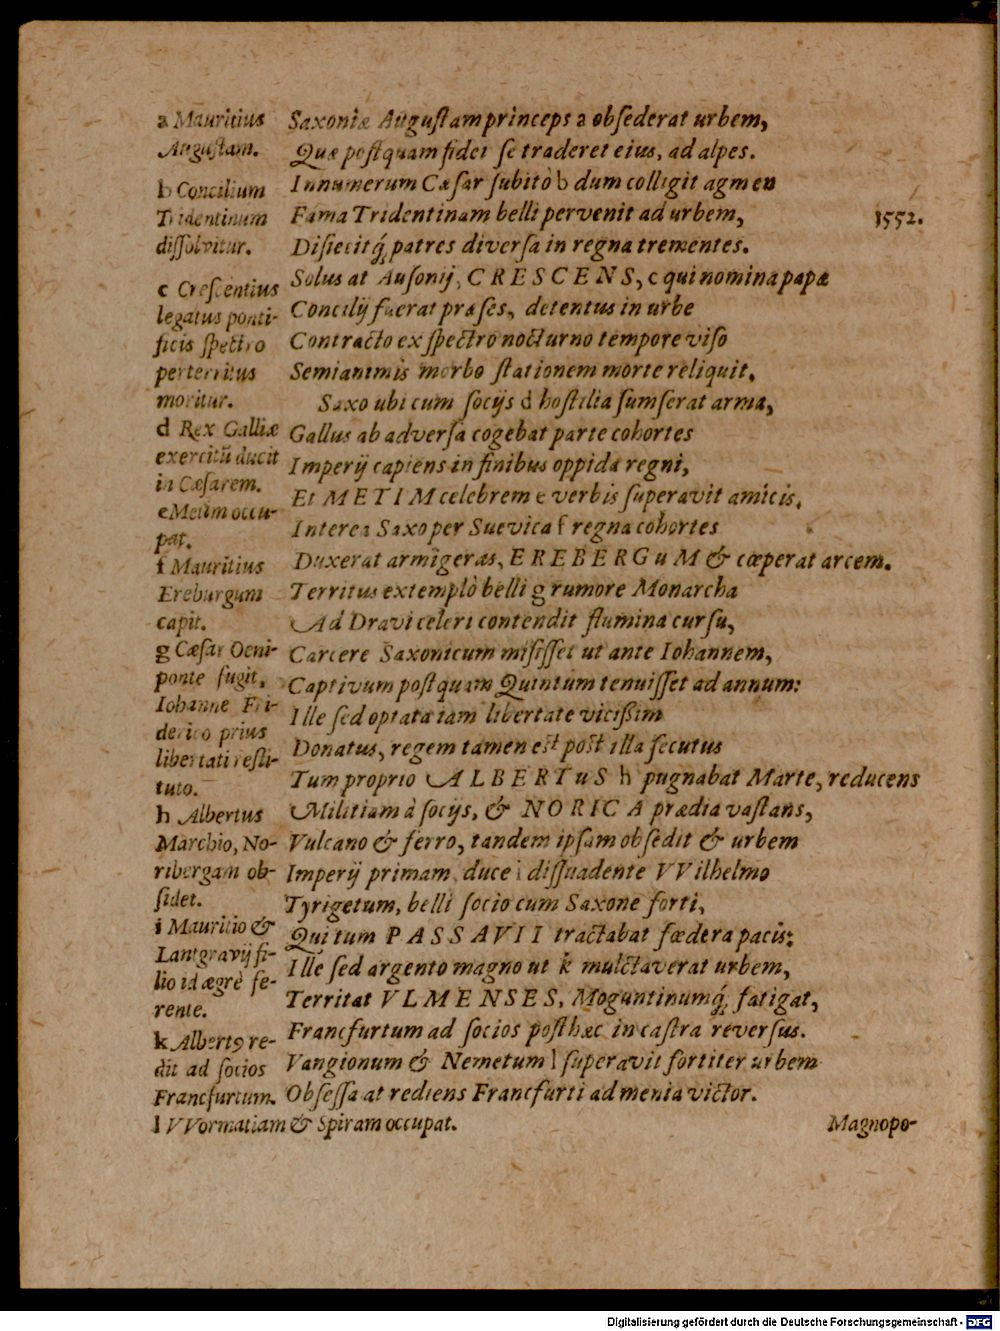 a Mauritius
Augustam.
b Concilium
Tridentinum
dissolvitur.
c Crescentius
legatus ponti-
ficis spectro
perterritus
moritur.
d Rex Galliæ
exercitũ ducit
in Cæsarem.
e Metim occu-
pat.
f Mauritius
Ereburgum
capit.
g Cæsar Oeni-
ponte fugit,
Iohanne Fri-
derico prius
libertati resti-
tuto.
h Albertus
Marchio, No-
ribergam ob-
sidet.
i Mauritio &
Lantgravij fi-
lio id ægrè fe-
rente.
k Albertꝰ re-
dit ad socios
Francfurtum.
l VVormatiam & Spiram occupat.
Saxoniæ Augustam princeps a obsederat urbem,
Quæ postquam fidei se traderet eius, ad alpes.
Innumerum Cæsar subitò b dum colligit agmen
Fama Tridentinam belli pervenit ad urbem,
1552.
Disiecitq́; patres diversa in regna trementes.
Solus at Ausonij, CRESCENS, c qui nomina papæ
Concilij fuerat præses, detentus in urbe
Contracto ex spectro nocturno tempore viso
Semianimis morbo stationem morte reliquit.
Saxo ubi cum socijs d hostilia sumserat arma,
Gallus ab adversa cogebat parte cohortes
Imperij capiens in finibus oppida regni,
Et METIM celebrem e verbis superavit amicis.
Interea Saxo per Suevica f regna cohortes
Duxerat armigeras, EREBERGuM & cœperat arcem.
Territus extemplò belli g rumore Monarcha
Ad Dravi celeri contendit flumina cursu,
Carcere Saxonicum misisset ut ante Iohannem,
Captivum postquam Quintum tenuisset ad annum:
Ille sed optata iam libertate vicißim
Donatus, regem tamen est post illa secutus
Tum proprio ALBERTuS h pugnabat Marte, reducens
Militiam à socijs, & NORICA prædia vastans,
Vulcano & ferro, tandem ipsam obsedit & urbem
Imperij primam, duce i dissuadente VVilhelmo
Tyrigetum, belli socio cum Saxone forti,
Qui tum PASSAVII tractabat fœdera pacis:
Ille sed argento magno ut k mulctaverat urbem,
Territat VLMENSES, Moguntinumq́; fatigat,
Francfurtum ad socios posthæc in castra reversus.
Vangionum & Nemetum l superavit fortiter urbem
Obsessa at rediens Francfurti ad menia victor.
Magnopo-
Digitalisierung gefördert durch die Deutsche Forschungsgemeinschaft - DFG